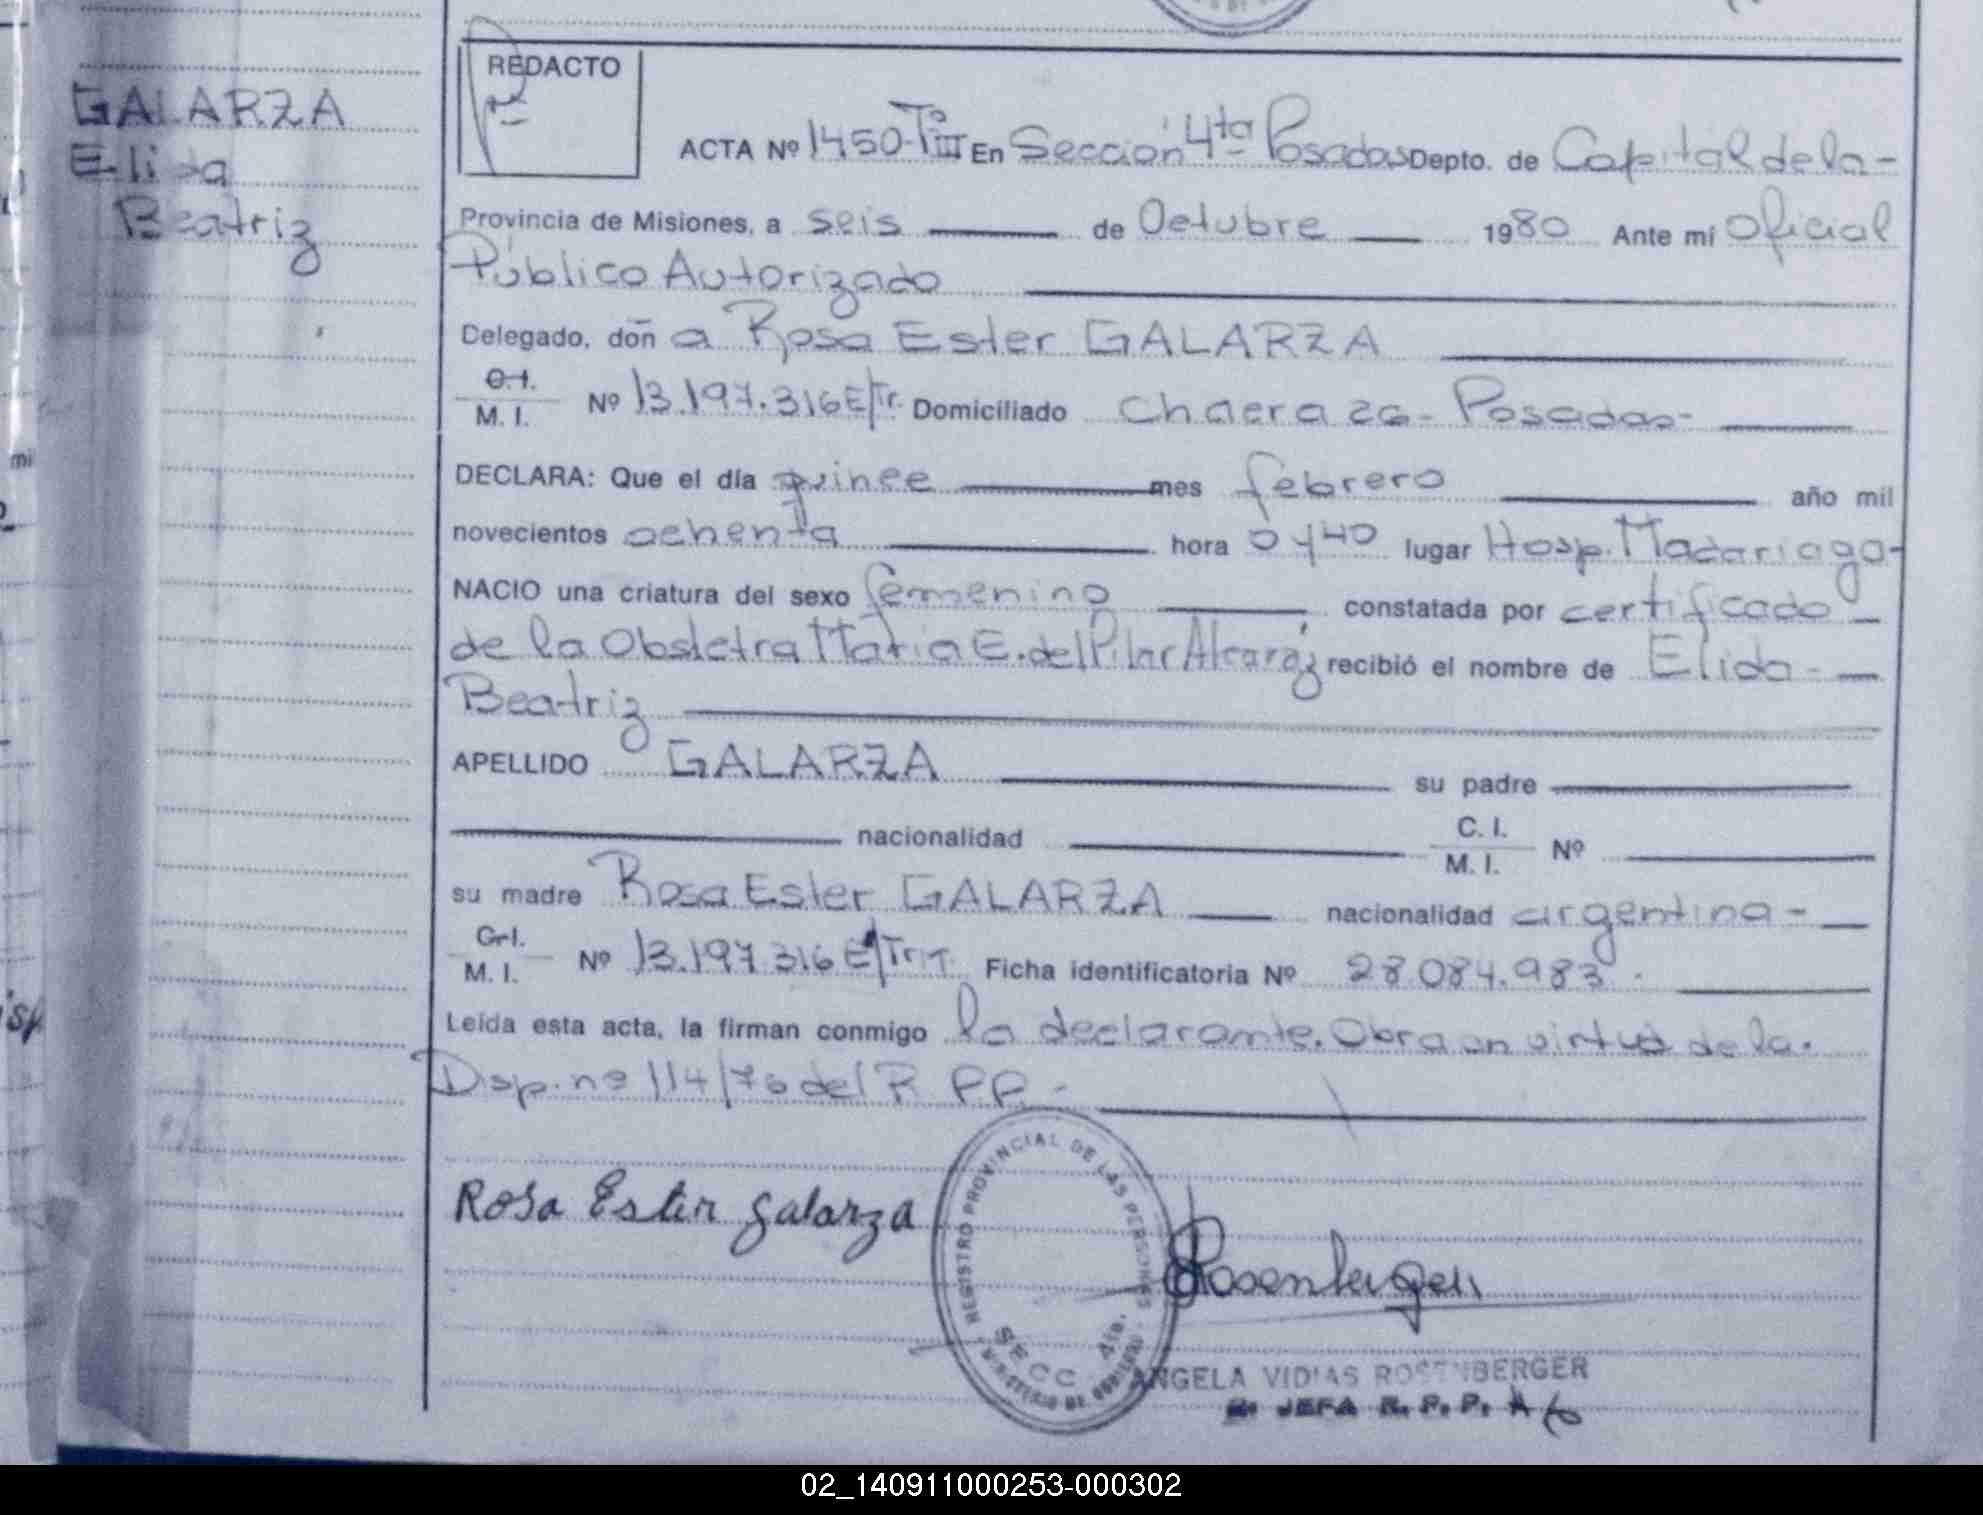 GALARZA
Elida
Beatriz
REDACTO
ACTA Nº 1450-Tº III En Sección 4ta Posadas Depto. de Capital de la -
Provincia de Misiones, a seis de Octubre 1980 Ante mí Oficial
Público Autorizado
Delegado, don a Rosa Ester GALARZA
C.I.
M. I. Nº 13.197.316 E/Tr. Domiciliado Chacra 26 - Posadas -
DECLARA: Que el día quince mes febrero año mil
novecientos ochenta hora 0440 lugar Hosp. Madariaga -
NACIO una criatura del sexo femenino constatada por certificado
de la Obstetra María E. del Pilar Alcaráz recibió el nombre de Elida -
Beatriz
APELLIDO GALARZA su padre
nacionalidad C. I. M. I. Nº
su madre Rosa Ester GALARZA nacionalidad argentina -
C.I.
M. I. Nº 13.197.316 E/Trt. Ficha identificatoria Nº 28.084.983 -
Leída esta acta, la firman conmigo la declarante. Obra en virtud de la
Disp. nº 114/76 del R.P.P. -
REGISTRO PROVINCIAL DE LAS PERSONAS
SECC 4ta.
MINISTERIO DE GOBIERNO
Rosa Ester Galarza
Rosenberger
ANGELA VIDIAS ROSENBERGER
JEFA R. P. P.
02_140911000253-000302